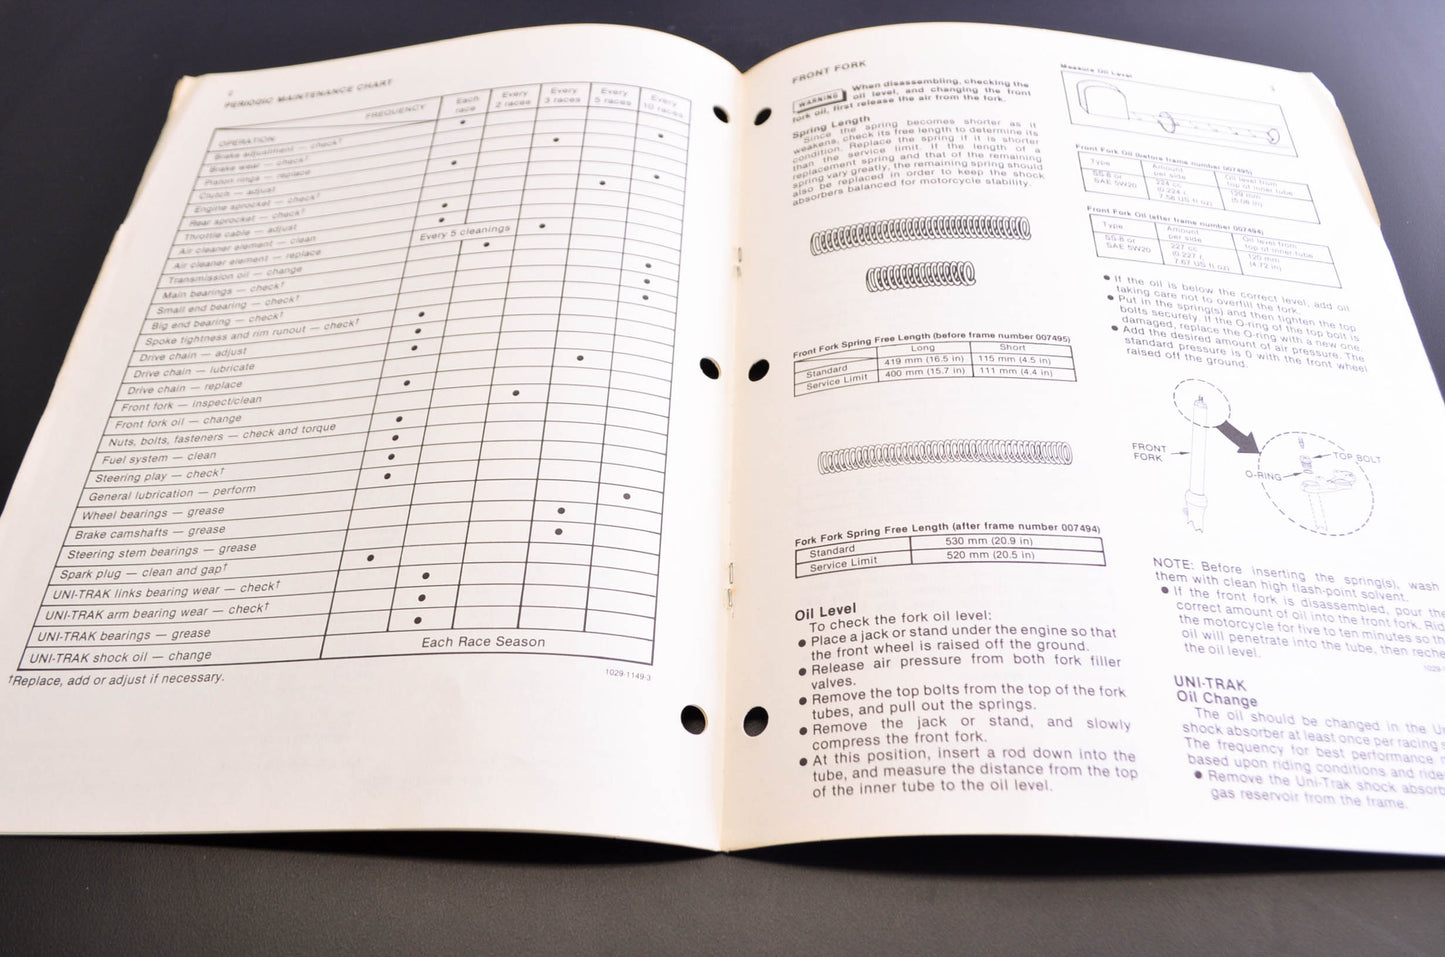 2
PERIODIC MAINTENANCE CHART
FREQUENCY
OPERATION
Each race
Every 2 races
Every 3 races
Every 5 races
Every 10 races
Brake adjustment — check†
Brake wear — check†
Piston rings — replace
Clutch — adjust
Engine sprocket — check†
Rear sprocket — check†
Throttle cable — adjust
Air cleaner element — clean
Every 5 cleanings
Air cleaner element — replace
Transmission oil — change
Main bearings — check†
Small end bearing — check†
Big end bearing — check†
Spoke tightness and rim runout — check†
Drive chain — adjust
Drive chain — lubricate
Drive chain — replace
Front fork — inspect/clean
Front fork oil — change
Nuts, bolts, fasteners — check and torque
Fuel system — clean
Steering play — check†
General lubrication — perform
Wheel bearings — grease
Brake camshafts — grease
Steering stem bearings — grease
Spark plug — clean and gap†
UNI-TRAK links bearing wear — check†
UNI-TRAK arm bearing wear — check†
UNI-TRAK bearings — grease
UNI-TRAK shock oil — change
Each Race Season
†Replace, add or adjust if necessary.
1029-1149-3
FRONT FORK
WARNING When disassembling, checking the
oil level, and changing the front
fork oil, first release the air from the fork.
Spring Length
Since the spring becomes shorter as it
weakens, check its free length to determine its
condition. Replace the spring if it is shorter
than the service limit. If the length of a
replacement spring and that of the remaining
spring vary greatly, the remaining spring should
also be replaced in order to keep the shock
absorbers balanced for motorcycle stability.
Front Fork Spring Free Length (before frame number 007495)
Long Short
Standard 419 mm (16.5 in) 115 mm (4.5 in)
Service Limit 400 mm (15.7 in) 111 mm (4.4 in)
Fork Fork Spring Free Length (after frame number 007494)
Standard 530 mm (20.9 in)
Service Limit 520 mm (20.5 in)
Oil Level
To check the fork oil level:
● Place a jack or stand under the engine so that
the front wheel is raised off the ground.
● Release air pressure from both fork filler
valves.
● Remove the top bolts from the top of the fork
tubes, and pull out the springs.
● Remove the jack or stand, and slowly
compress the front fork.
● At this position, insert a rod down into the
tube, and measure the distance from the top
of the inner tube to the oil level.
3
Measure Oil Level
Front Fork Oil (before frame number 007495)
Type
Amount per side
Oil level from top of inner tube
SS-8 or SAE 5W20
224 cc
(0.224 ℓ,
7.58 US fl oz)
129 mm
(5.08 in)
Front Fork Oil (after frame number 007494)
Type
Amount per side
Oil level from top of inner tube
SS-8 or SAE 5W20
227 cc
(0.227 ℓ,
7.67 US fl oz)
120 mm
(4.72 in)
● If the oil is below the correct level, add oil
taking care not to overfill the fork.
● Put in the spring(s) and then tighten the top
bolts securely. If the O-ring of the top bolt is
damaged, replace the O-ring with a new one.
● Add the desired amount of air pressure. The
standard pressure is 0 with the front wheel
raised off the ground.
FRONT
FORK
TOP BOLT
O-RING
NOTE: Before inserting the spring(s), wash
them with clean high flash-point solvent.
● If the front fork is disassembled, pour the
correct amount of oil into the front fork. Rid
the motorcycle for five to ten minutes so th
oil will penetrate into the tube, then reche
the oil level.
UNI-TRAK
Oil Change
The oil should be changed in the Un
shock absorber at least once per racing
The frequency for best performance
based upon riding conditions and ride
● Remove the Uni-Trak shock absorb
gas reservoir from the frame.